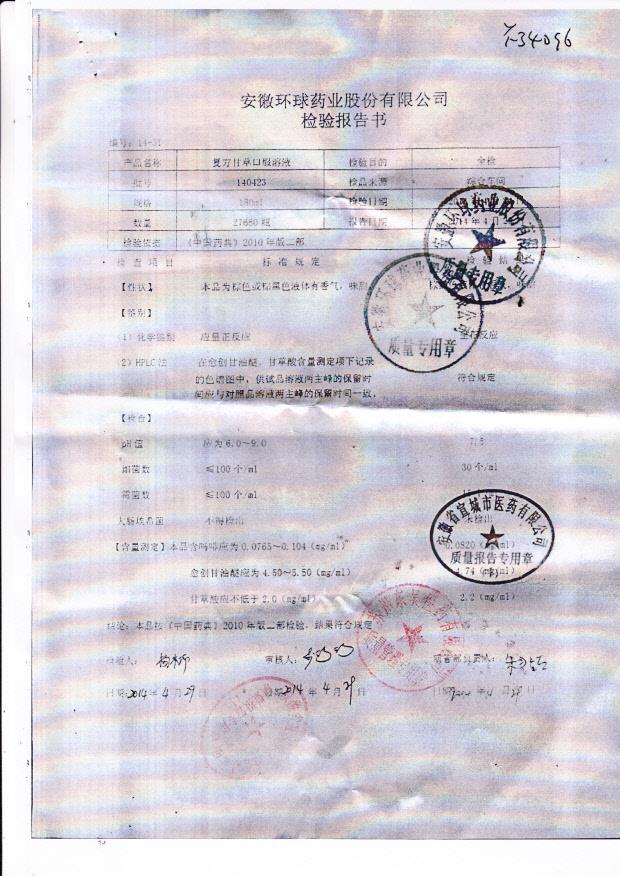 Y-34096
安徽环球药业股份有限公司
检验报告书
编号：14-31
产品名称 复方甘草口服溶液 检验目的 全检
批号 140423 检品来源 综合车间
规格 180ml 检验日期
数量 27660瓶 报告日期
检验依据 《中国药典》2010年版二部
检查项目 标准规定 检验结
【性状】 本品为棕色或棕黑色液体有香气，味甜
【鉴别】
1）化学鉴别 应呈正反应 反应
2）HPLC法 在愈创甘油醚、甘草酸含量测定项下记录
的色谱图中，供试品溶液两主峰的保留时 符合规定
间应与对照品溶液两主峰的保留时间一致。
【检查】
pH值 应为6.0～9.0
细菌数 ≤100个/ml 30个/ml
霉菌数 ≤100个/ml
大肠埃希菌 不得检出 未检出
【含量测定】本品含吗啡应为0.0765～0.104（mg/ml） 0.0820
愈创甘油醚应为4.50～5.50（mg/ml） 4.74（mg/ml）
甘草酸应不低于2.0（mg/ml） 2.2（mg/ml）
结论：本品按《中国药典》2010年版二部检验，结果符合规定
检验人： 审核人： 负责人：
日期：2014年4月29日 2014年4月29日
安徽环球药业股份有限公司
质量专用章
质量专用章
安徽省宣城市医药有限公司
质量报告专用章